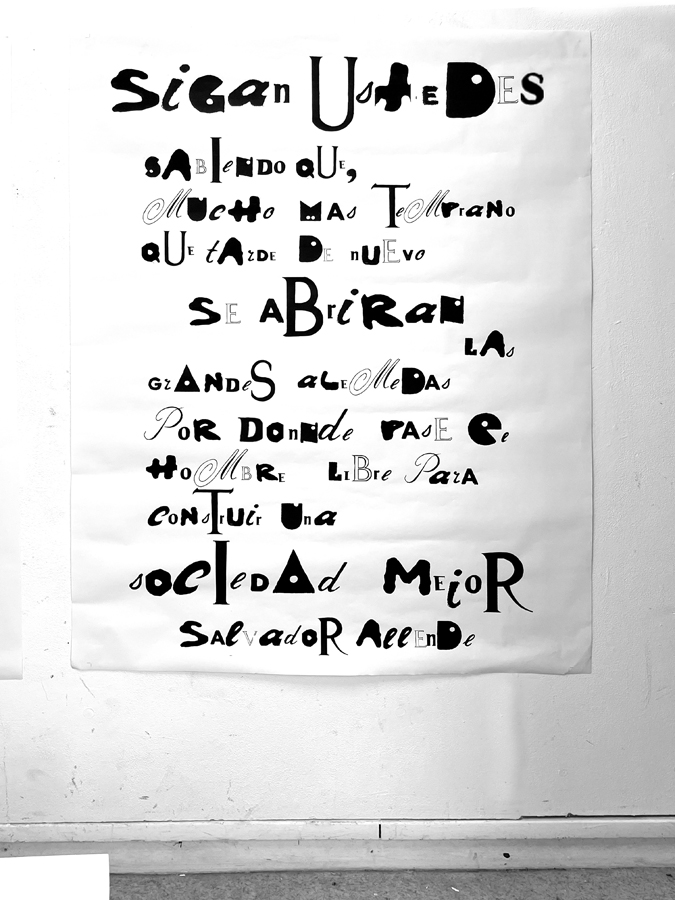 SiGan UstEDES
SABIENDO QUE,
MUcHo MAs TeMPraNo
QUE tARDE DE nUEvo
SE ABriRaN
LAs
GrANDeS aLEMeDAS
PoR DonNde PAsE eL
HoMBRE LIBre PaRA
coNsTrUir Una
sOCIeDAd MEjoR
SALvadoR AllEnDe